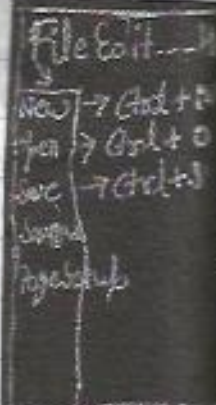 File Edit
New → Ctrl + N
Open → Ctrl + O
Save → Ctrl + S
Page Setup